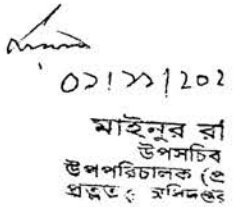 ০১/১১/২০২
মাইনুর রা
উপসচিব
উপপরিচালক (প্র
প্রত্নতত্ত্ব অধিদপ্তর